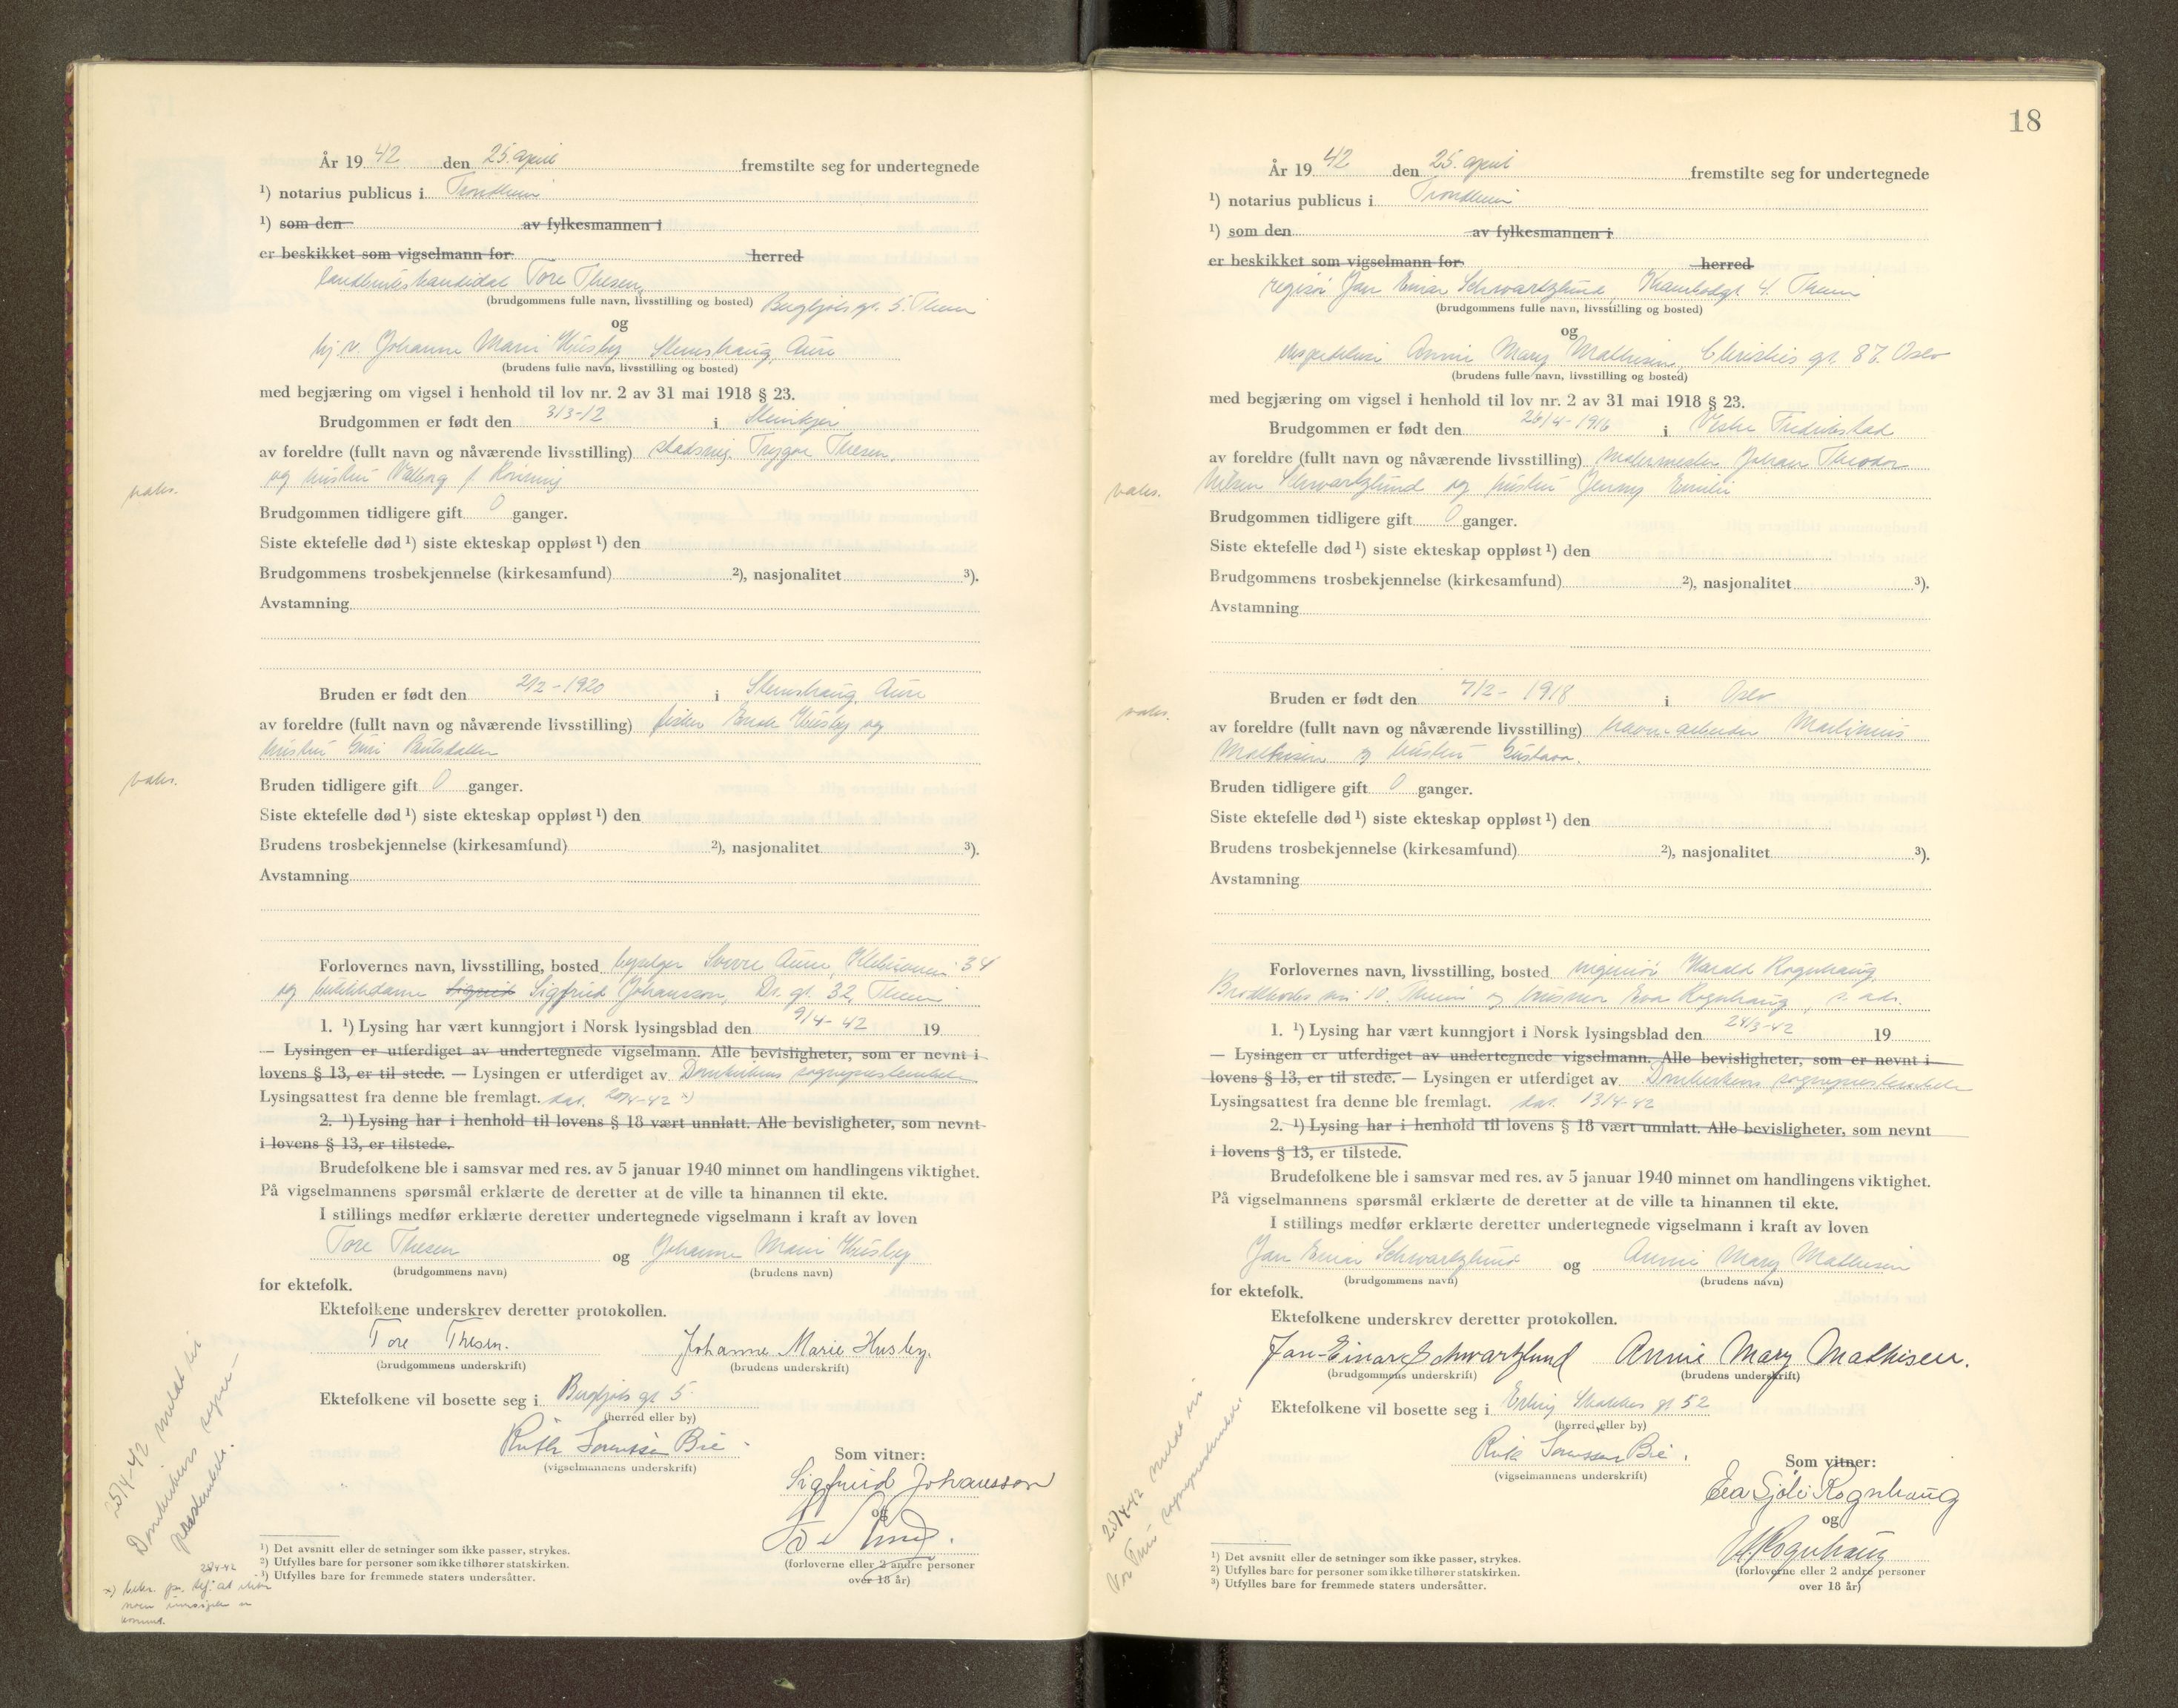 År 19 42 den 25. april fremstilte seg for undertegnede
¹) notarius publicus i Trondheim
¹) som den av fylkesmannen i
er beskikket som vigselmann for herred
Tore Thesen,
(brudgommens fulle navn, livsstilling og bosted) Bergljots gt. 5. Them
og
hj.v. Johanne Marie Husby Stemshaug, Aure
(brudens fulle navn, livsstilling og bosted)
med begjæring om vigsel i henhold til lov nr. 2 av 31 mai 1918 § 23.
Brudgommen er født den 3/3-12 i Steinkjer
av foreldre (fullt navn og nåværende livsstilling) stadsing. Trygve Thesen,
og hustru Valborg f. Rönning
vaks.
Brudgommen tidligere gift 0 ganger.
Siste ektefelle død ¹) siste ekteskap oppløst ¹) den
Brudgommens trosbekjennelse (kirkesamfund) ²), nasjonalitet ³).
Avstamning
Bruden er født den 2/2-1920 i Stemshaug, Aure
av foreldre (fullt navn og nåværende livsstilling) fisker Husby og
hustru Guri
vaks.
Bruden tidligere gift 0 ganger.
Siste ektefelle død ¹) siste ekteskap oppløst ¹) den
Brudens trosbekjennelse (kirkesamfund) ²), nasjonalitet ³).
Avstamning
Forlovernes navn, livsstilling, bosted byselger Sverre Aune, 34
og butikkdame Sigfrid Johansson, Dr. gt. 32, Them
1. ¹) Lysing har vært kunngjort i Norsk lysingsblad den 9/4-42 19
— Lysingen er utferdiget av undertegnede vigselmann. Alle bevisligheter, som er nevnt i
lovens § 13, er til stede. — Lysingen er utferdiget av Domkirkens sogneprestembete
Lysingsattest fra denne ble fremlagt. dat. 20/4-42 x)
2. ¹) Lysing har i henhold til lovens § 18 vært unnlatt. Alle bevisligheter, som nevnt
i lovens § 13, er tilstede.
Brudefolkene ble i samsvar med res. av 5 januar 1940 minnet om handlingens viktighet.
På vigselmannens spørsmål erklærte de deretter at de ville ta hinannen til ekte.
I stillings medfør erklærte deretter undertegnede vigselmann i kraft av loven
Tore Thesen og Johanne Marie Husby
(brudgommens navn) (brudens navn)
for ektefolk.
Ektefolkene underskrev deretter protokollen.
Tore Thesen. Johanne Marie Husby.
(brudgommens underskrift) (brudens underskrift)
Ektefolkene vil bosette seg i Bergljots gt 5.
(herred eller by)
Ruth Sorenssen Bie.
(vigselmannens underskrift)
Som vitner:
Sigfrid Johansson
og
(forloverne eller 2 andre personer
over 18 år)
25/4-42 meldt til
Domkirkens sogne-
prestembete.
¹) Det avsnitt eller de setninger som ikke passer, strykes.
²) Utfylles bare for personer som ikke tilhører statskirken.
³) Utfylles bare for fremmede staters undersåtter.
18
År 19 42 den 25. april fremstilte seg for undertegnede
¹) notarius publicus i Trondheim
¹) som den av fylkesmannen i
er beskikket som vigselmann for herred
regisør Jan Einar Schwartzlund, Them
(brudgommens fulle navn, livsstilling og bosted)
og
ekspeditrise Annie Mary Mathisen, Christies gt. 87. Oslo
(brudens fulle navn, livsstilling og bosted)
med begjæring om vigsel i henhold til lov nr. 2 av 31 mai 1918 § 23.
Brudgommen er født den 26/4-1916 i Vestre Fredrikstad
av foreldre (fullt navn og nåværende livsstilling) Malermester Johan Theodor
Nilsen Schwartzlund og hustru Jenny Emilie
vaks.
Brudgommen tidligere gift 0 ganger.
Siste ektefelle død ¹) siste ekteskap oppløst ¹) den
Brudgommens trosbekjennelse (kirkesamfund) ²), nasjonalitet ³).
Avstamning
Bruden er født den 7/2-1918 i Oslo
vaks.
av foreldre (fullt navn og nåværende livsstilling) havnearbeider Martinius
Mathisen og hustru Gustava.
Bruden tidligere gift 0 ganger.
Siste ektefelle død ¹) siste ekteskap oppløst ¹) den
Brudens trosbekjennelse (kirkesamfund) ²), nasjonalitet ³).
Avstamning
Forlovernes navn, livsstilling, bosted ingeniør Harald Rognhaug,
10. Them og husmor Eva Rognhaug, s. adr.
1. ¹) Lysing har vært kunngjort i Norsk lysingsblad den 24/3-42 19
— Lysingen er utferdiget av undertegnede vigselmann. Alle bevisligheter, som er nevnt i
lovens § 13, er til stede. — Lysingen er utferdiget av Domkirkens sogneprestembete
Lysingsattest fra denne ble fremlagt. dat. 13/4-42
2. ¹) Lysing har i henhold til lovens § 18 vært unnlatt. Alle bevisligheter, som nevnt
i lovens § 13, er tilstede.
Brudefolkene ble i samsvar med res. av 5 januar 1940 minnet om handlingens viktighet.
På vigselmannens spørsmål erklærte de deretter at de ville ta hinannen til ekte.
I stillings medfør erklærte deretter undertegnede vigselmann i kraft av loven
Jan Einar Schwartzlund og Annie Mary Mathisen
(brudgommens navn) (brudens navn)
for ektefolk.
Ektefolkene underskrev deretter protokollen.
Jan-Einar Schwartzlund Annie Mary Mathisen.
(brudgommens underskrift) (brudens underskrift)
Ektefolkene vil bosette seg i Erling Skakkes gt 52
(herred eller by)
Ruth Sorenssen Bie.
(vigselmannens underskrift)
Som vitner:
Eva Sjöli Rognhaug
og
H Rognhaug
(forloverne eller 2 andre personer
over 18 år)
25/4-42 meldt til
Vår Frue sogneprestembete.
¹) Det avsnitt eller de setninger som ikke passer, strykes.
²) Utfylles bare for personer som ikke tilhører statskirken.
³) Utfylles bare for fremmede staters undersåtter.